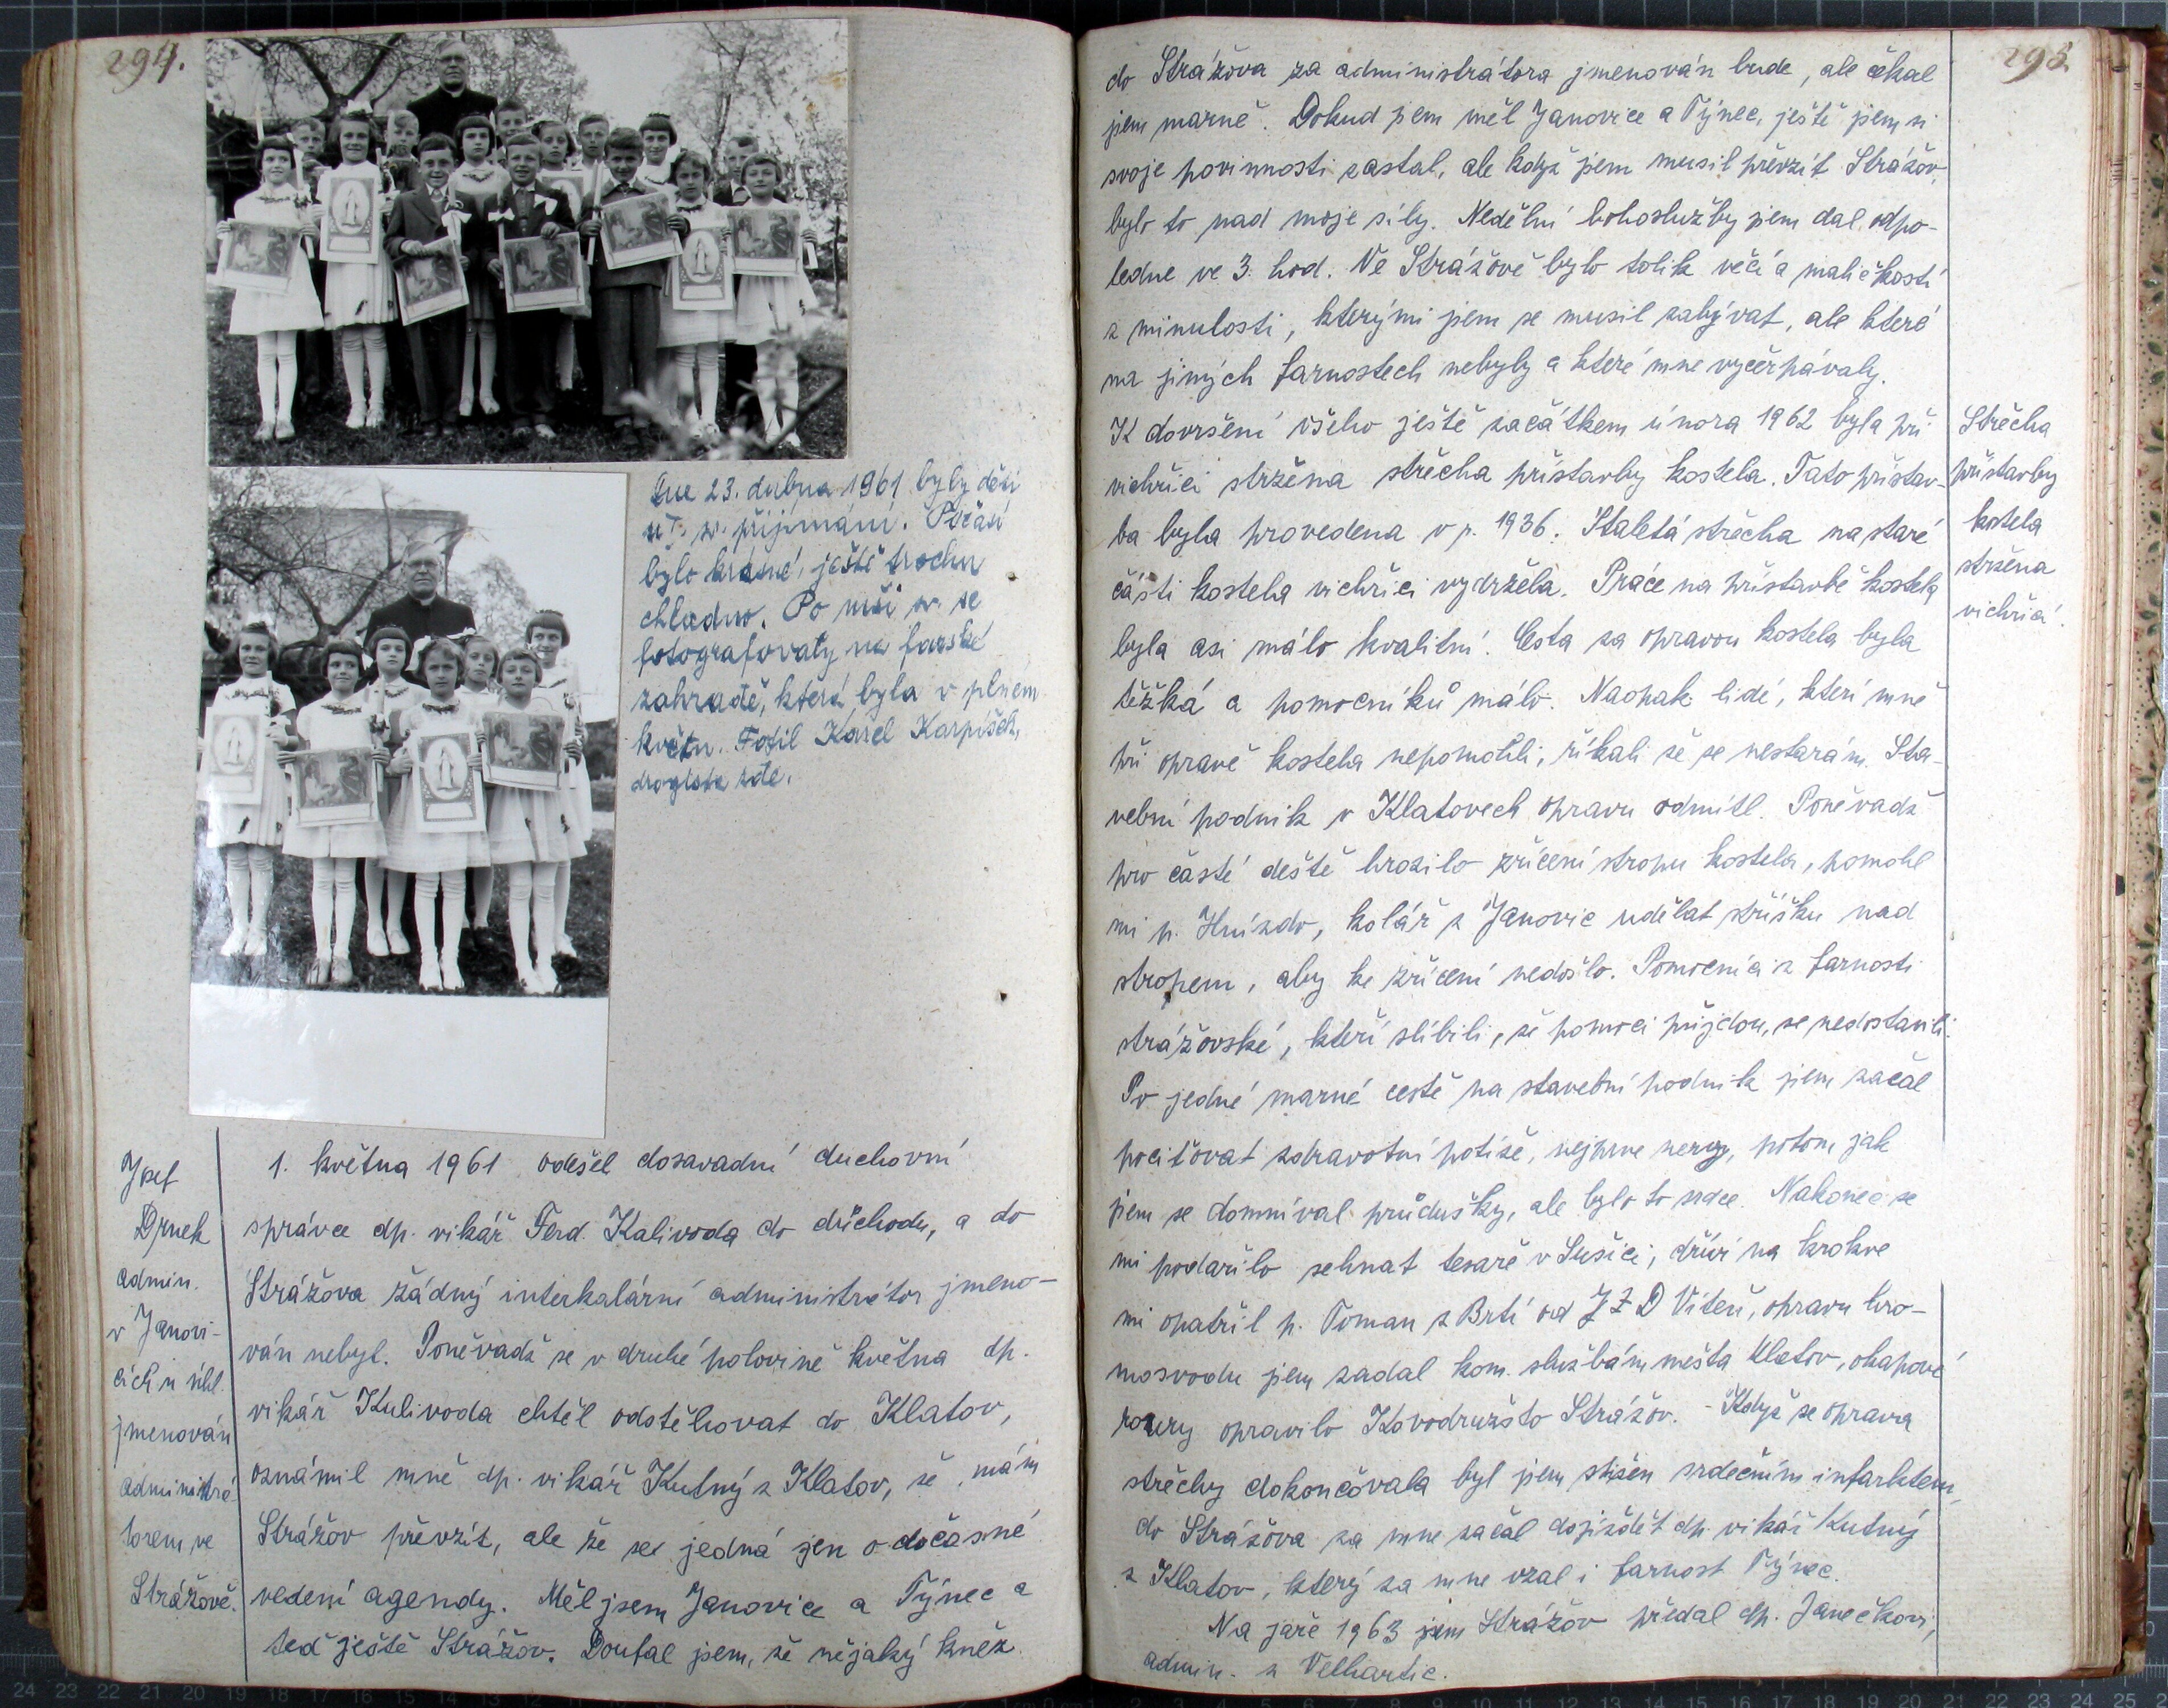 294.
Dne 23. dubna 1961 byly děti
u I. sv. přijímání. Počasí
bylo krásné, ještě trochu
chladno. Po mši sv. se
fotografovaly na farské
zahradě, která byla v plném
květu. Fotil Karel Karpíšek,
drogista zde.
Josef
Drnek
admin.
v Janovi-
cích n úhl.
jmenován
administrá-
torem ve
Strážově.
1. května 1961 odešel dosavadní duchovní
správce dp. vikář Ferd. Kalivoda do důchodu, a do
Strážova žádný interkalární administrátor jmeno-
ván nebyl. Poněvadž se v druhé polovině května dp.
vikář Kalivoda chtěl odstěhovat do Klatov,
oznámil mně dp. vikář Kutný z Klatov, že mám
Strážov převzít, ale že se jedná jen o dočasné
vedení agendy. Měl jsem Janovice a Týnec a
teď ještě Strážov. Doufal jsem, že nějaký kněz
295.
do Strážova za administrátora jmenován bude, ale čekal
jsem marně. Dokud jsem měl Janovice a Týnec, ještě jsem si
svoje povinnosti zastal, ale když jsem musil převzít Strážov,
bylo to nad moje síly. Nedělní bohoslužby jsem dal odpo-
ledne ve 3. hod. Ve Strážově bylo tolik věcí a maličkostí
z minulosti, kterými jsem se musil zabývat, ale které
na jiných farnostech nebyly a které mne vyčerpávaly.
K dovršení všeho ještě začátkem února 1962 byla při
vichřici stržena střecha přístavby kostela. Tato přístav-
ba byla provedena v r. 1936. Staletá střecha na staré
části kostela vichřici vydržela. Práce na přístavbě kostela
byla asi málo kvalitní. Cesta za opravou kostela byla
těžká a pomocníků málo. Naopak lidé, kteří mně
při opravě kostela nepomohli, říkali že se nestarám. Sta-
vební podnik v Klatovech opravu odmítl. Poněvadž
pro časté deště hrozilo zřícení stropu kostela, pomohl
mi p. Hnízdo, kolář z Janovic udělat stříšku nad
stropem, aby ke zřícení nedošlo. Pomocníci z farnosti
strážovské, kteří slíbili, že pomoci přijdou, se nedostavili.
Po jedné marné cestě na stavební podnik jsem začal
pociťovat zdravotní potíže, nejprve nervy, potom jak
jsem se domníval průdušky, ale bylo to srdce. Nakonec se
mi podařilo sehnat tesaře v Sušici, dříví na krokve
mi opatřil p. Toman z Brtí od JZD Viteň, opravu hro-
mosvodu jsem zadal kom. službám města Klatov, okapové
roury opravilo Kovodružsto Strážov. - Když se oprava
střechy dokončovala byl jsem stižen srdečním infarktem,
do Strážova za mne začal dojíždět dp. vikář Kutný
z Klatov, který za mne vzal i farnost Týnec.
Na jaře 1963 jsem Strážov předal dp. Janečkovi,
admin. z Velhartic.
Střecha
přístavby
kostela
stržena
vichřicí.